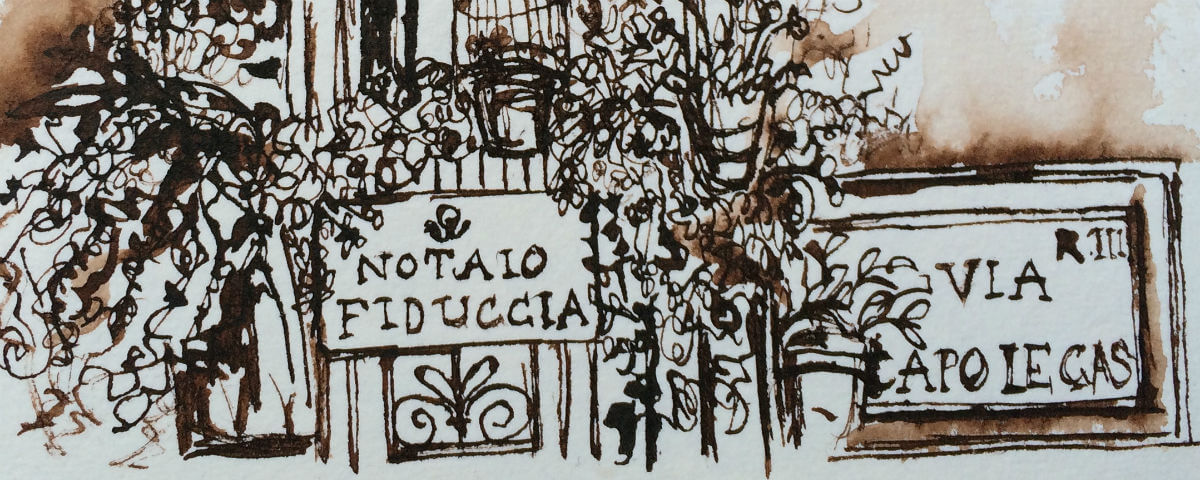 NOTAIO
FIDUCCIA
R.III
VIA
CAPO LE CAS